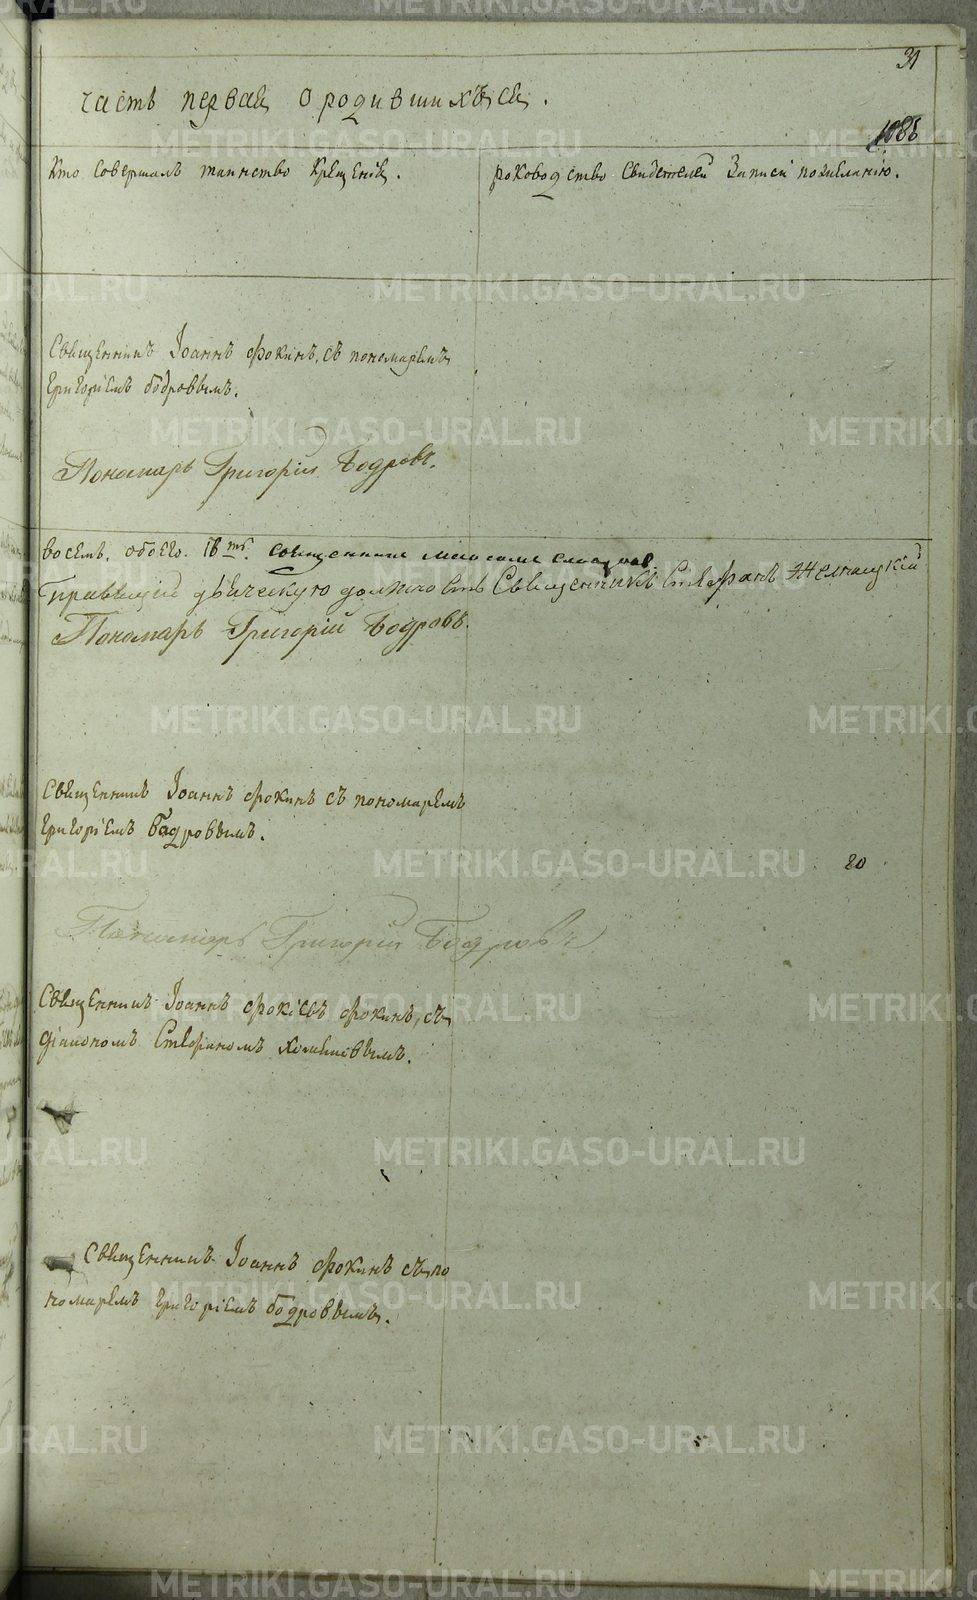 31
часть первая о родившихъся.
1088
Кто совершалъ таинство крещенія.
роководство свидетелей записи по желанію.
Священникъ Іоаннъ Фокинъ, съ пономаремъ
Григоріемъ бодровымъ.
Пономарь Григорій Бодровъ.
восемь, обоего. 18
правящій должность Священникъ Стефанъ
Пономарь Григорій Бодровъ.
Священникъ Іоаннъ Фокинъ съ пономаремъ
Григоріемъ Бадровымъ.
20
Пономарь Григорий Бодровъ
Священникъ Іоаннъ Фокинъ, съ
діакономъ Стефаномъ
Священникъ Іоаннъ Фокинъ съ по
номаремъ Григоріемъ бодровымъ.
METRIKI.GASO-URAL.RU